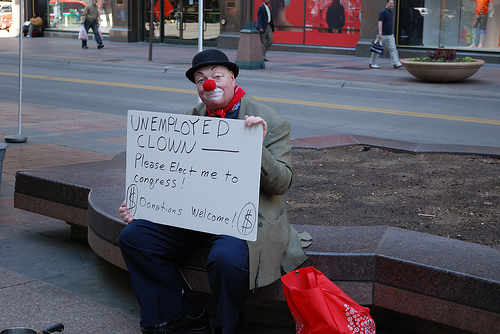 UNEMPLOYED
CLOWN —
Please Elect me to
congress!
$ Donations Welcome! $